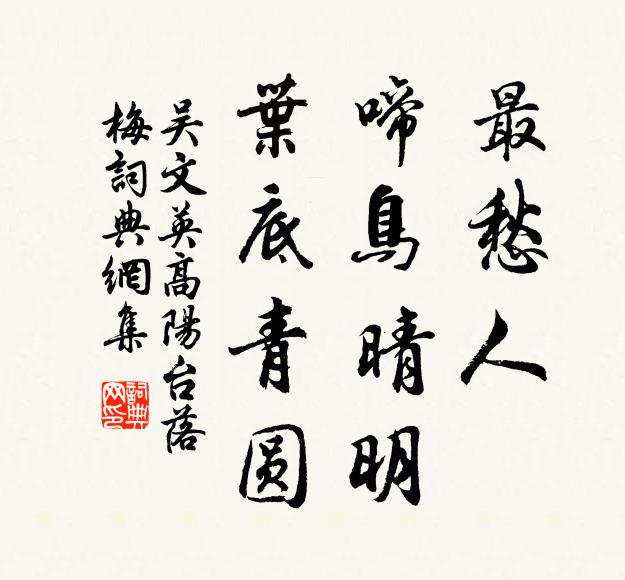 最愁人
啼鳥晴明
葉底青圆
吴文英高陽台落
梅詞典網集
詞典網印